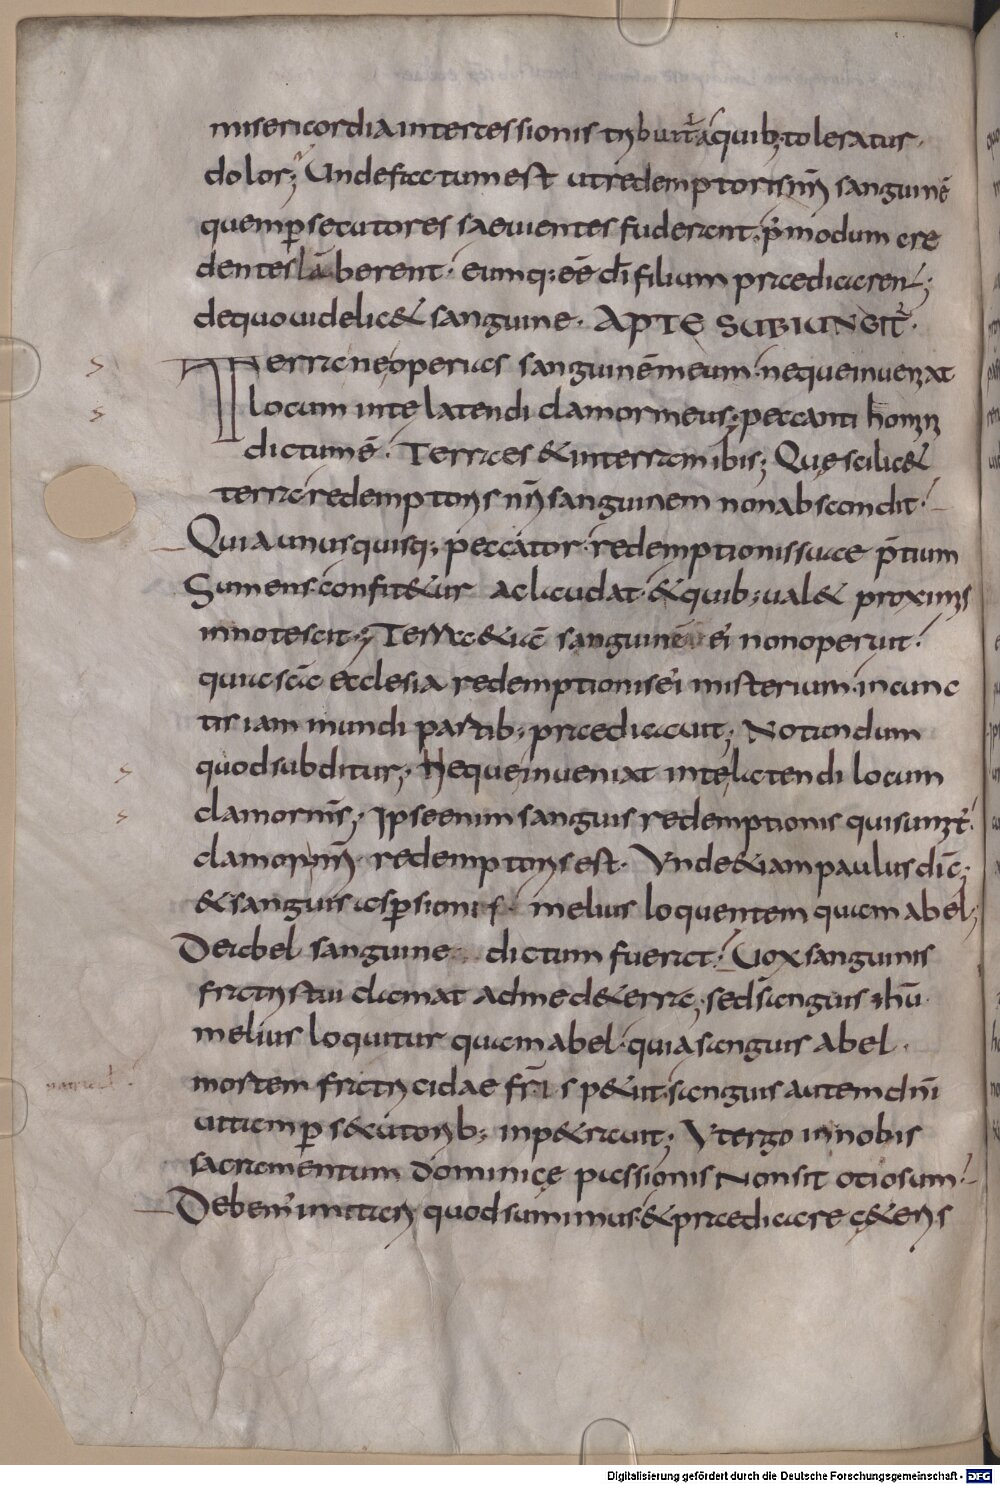 misericordia intercessionis tribuit a quib; toleratus
dolor; Unde factum est ut redemptoris nr̄i sanguinē
quem p̄secutores saeuientes fuderant. p̄ modum cre
dentes lāberent. eumq; eē dī filium praedicaren̄;
de quo uidelic& sanguine. APTE SUBIUNGIT̄.
Terra ne operias sanguinē meum. neque inueniat
locum in te latendi clamor meus; peccanti homini
dictum ē. Terra es & in terram ibis; Quę scilic&
terra redemptoris nr̄i sanguinem non abscondit.
Quia unusquisq; peccator redemptionis suae p̄tium
Sumens confit&ur ac laudat. & quib; ual& proximis
innotescit; Terra &iā sanguinē ei non operuit.
quia scā ecclesia redemptionis ei misterium in cunc
tis iam mundi partib; praedicauit; Notandum
quod subditur; Neque inueniat in te latendi locum
clamor m̄s; Ipse enim sanguis redemptionis qui sumit̄
clamor nr̄i redemptoris est. Unde &iam paulus dic̄;
& sanguis asp̄sionis melius loquentem quam abel;
De abel sanguine dictum fuerat. Uox sanguinis
fratris tui clamat ad me de terra; sed sanguis ihū
melius loquitur quam abel. quia sanguis abel
mortem fratricidae fr̄i sp&iit. sanguis autem dn̄i
uitam p̄s&utorib; inp&rauit; Ut ergo in nobis
sacramentum dominicę passionis non sit otiosum
Debem' imitari quod sumimus. & praedicare c&eris
Digitalisierung gefördert durch die Deutsche Forschungsgemeinschaft - DFG